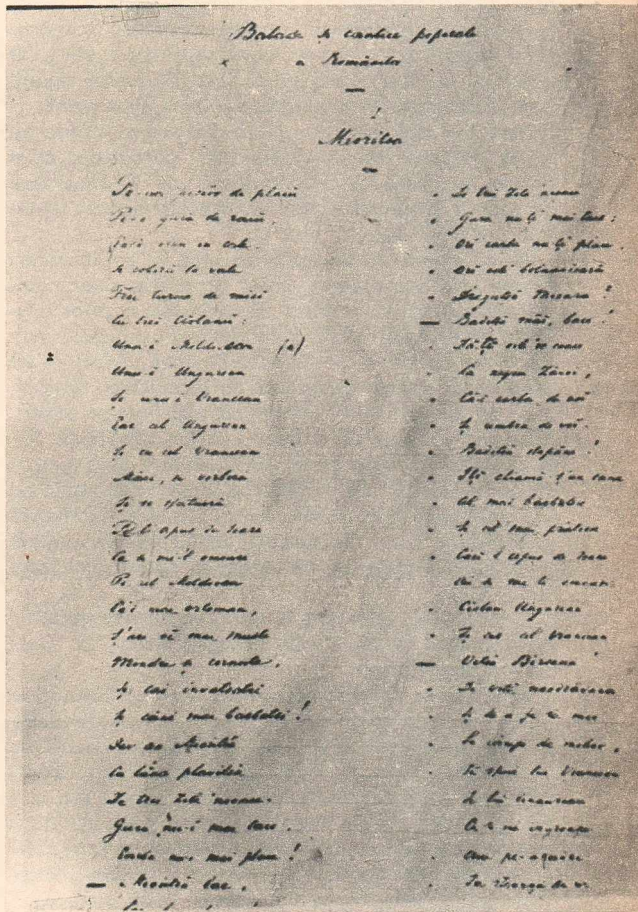 Balade și cantice poporale
a Românilor
Miorița
Pe un picior de plaiu
Pe o gura de raiu
Eată vin in cale
Se cobor la vale
Trei turme de miei
Cu trei ciobanei:
Unu-i Moldovan (a)
Unu-i Ungurean
Și unu-i Vrancean
Ear cel Ungurean
Și cu cel Vrancean
Mări, se vorbira
Și se sfatuiră
Pe l' apus de soare
Ca să mi-l omoare
Pe cel Moldovan
Că-i mai ortoman,
Ș'are oi mai multe
Mândre și cornute,
Și cai invatsati
Și câni mai barbati!
Dar cea Mioriță
Cu lâna plaviță
De trei zile 'ncoace
Gura nu-i mai tace.
Earba nu-i mai place!
— Mioriță lae,
De trei zile 'ncoace
Gura nu-ți mai tace:
Ori earba nu-ți place
Ori ești bolnavioară
Draguță Mioară?
— Baciule mâi, bace!
Dă-ți oile 'ncoace
La negru Zăvoi,
Că-i earba de noi
Și umbra de voi.
Stapâne, stapâne!
Iți cheamă ș'un cane
Cel mai barbatesc
Și cel mai fratesc
Ca-i l'apus de soare
Vor să mi te omoare
Ciobanu Ungurean
Și cu cel Vrancean
— Oiță Bîrsana
De ești nasdravana
Și de-a fi să mor
In câmp de mohor,
Să spui lui Vrancean
Și lui Ungurean
Ca să mă ingroape
Aice pe-aproape
In strunga de oi